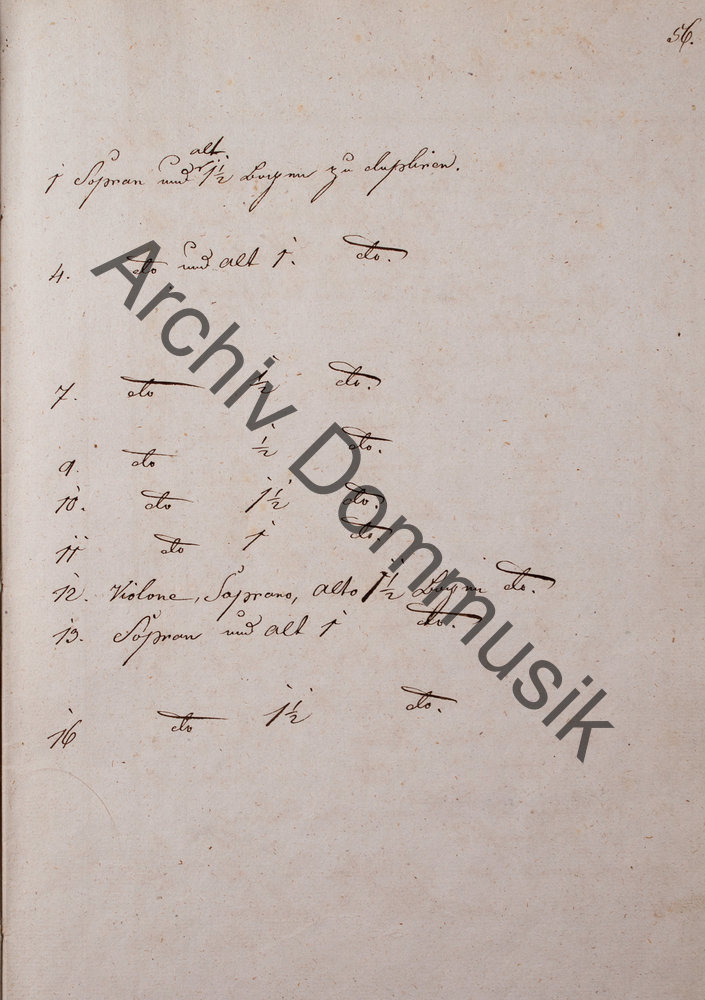 56.
alt
1 Sopran und 1 1/2 Bogen zu dupliren.
4. do und alt 1. do.
7. do 1 1/2 do.
9. do 1/2 do.
10. do 1 1/2 do.
11 do 1 do.
12. Violone, Soprano, alto 1 1/2 Bogen do.
13. Sopran und alt 1 do.
16 do 1 1/2 do.
Archiv Dommusik